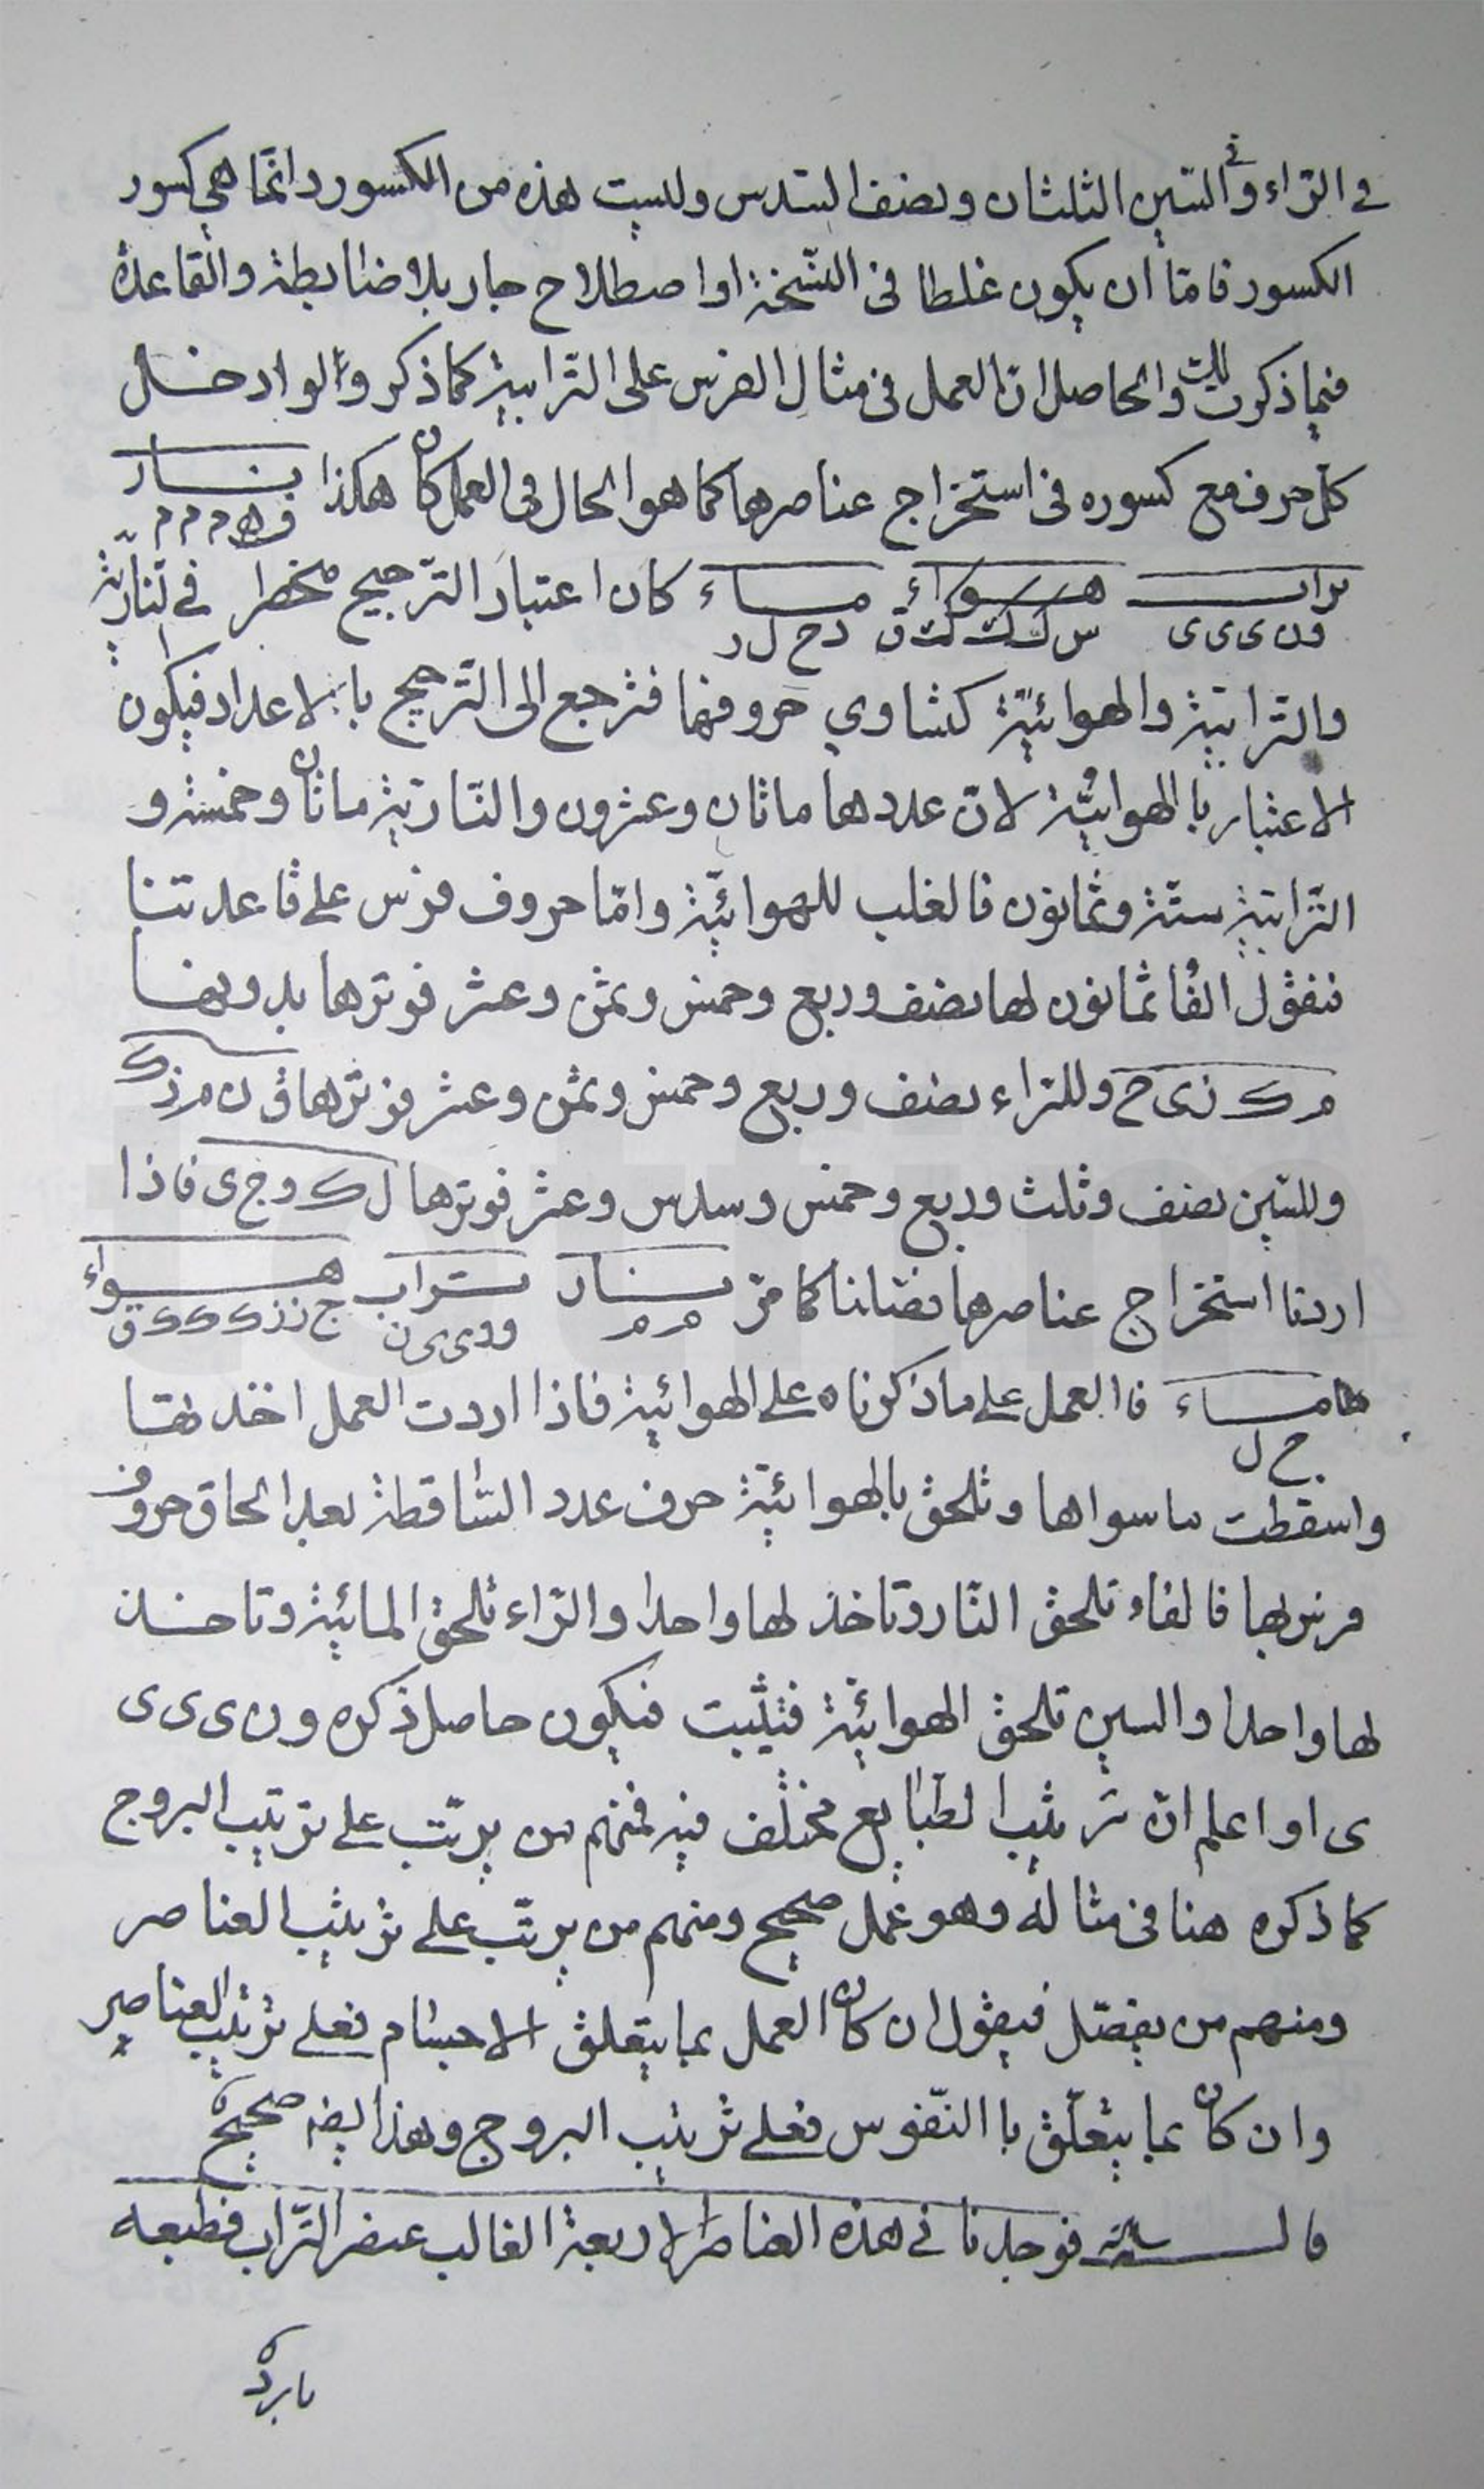 في الراء وفي السين الثلثان ونصف السدس وليست هذه من الكسور وانما هي كسور
الكسور فامّا ان يكون غلطا في النسخة او اصطلاح جار بلا ضابطة والقاعدة
فيما ذكرت لك والحاصل انّ العمل في مثال الفرس على الترابية كما ذكر ولو ادخل
كل حرف مع كسوره في استخراج عناصرها كما هو الحال في العمل كان هكذا نار
ف ه م م م
تراب هواء ماء كان اعتبار الترجيح منحصرا في النارية
و ن ى ى ى س ك ك ك ق د ح ل ر
والترابية والهوائية لتساوي حروفها فترجع الى الترجيح بالاعداد فيكون
الاعتبار بالهوائية لانّ عددها مائتان وعشرون والنارية مائتان وخمسة و
الترابية ستة وثمانون فالغلب للهوائية وامّا حروف فرس على قاعدتنا
فنقول الفا ثمانون لها نصف وربع وخمس وثمن وعشر فوترها بدونها
م ك ى ح وللراء نصف وربع وخمس وثمن وعشر فوترها ق ن م ك
وللسين نصف وثلث وربع وخمس وسدس وعشر فوترها ل ك و ج ى فاذا
اردنا استخراج عناصرها فصلنا كما مرّ نار تراب هواء
م م و و ى ى ى ن ج ز ز ك ك ك ق
ماء فالعمل على ما ذكرناه على الهوائية فاذا اردت العمل اخذتها
ح ل
واسقطت ما سواها وتلحق بالهوائية حرف عدد الساقطة بعد الحاق حروف
فرس بها فالفاء تلحق النار وتاخذ لها واحدا والراء تلحق المائية وتاخذ
لها واحدا والسين تلحق الهوائية فتثبت فيكون حاصل ذكره و ن ى ى ى
ى ا واعلم انّ ترتيب الطبايع مختلف فيه فمنهم من يرتّب على ترتيب البروج
كما ذكره هنا في مثاله وهو عمل صحيح ومنهم من يرتّب على ترتيب العناصر
ومنهم من يفصّل فيقول ان كان العمل بما يتعلق الاجسام فعلى ترتيب العناصر
وان كان بما يتعلّق با النّفوس فعلى ترتيب البروج وهذا ايضه صحيح
قال فوجدنا في هذه العناصر الاربعة الغالب عنصر التراب فطبعه
بارد